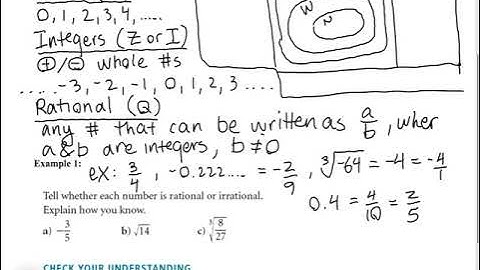 0, 1, 2, 3, 4, .....
Integers (Z or I)
⊕/⊖ whole #s
..... -3, -2, -1, 0, 1, 2, 3 ....
W
N
Rational (Q)
any # that can be written as a/b, wher
a & b are integers, b ≠ 0
Example 1:
ex: 3/4, -0.222.... = -2/9, ∛-64 = -4 = -4/1
0.4 = 4/10 = 2/5
Tell whether each number is rational or irrational.
Explain how you know.
a) -3/5 b) √14 c) ∛8/27
CHECK YOUR UNDERSTANDING